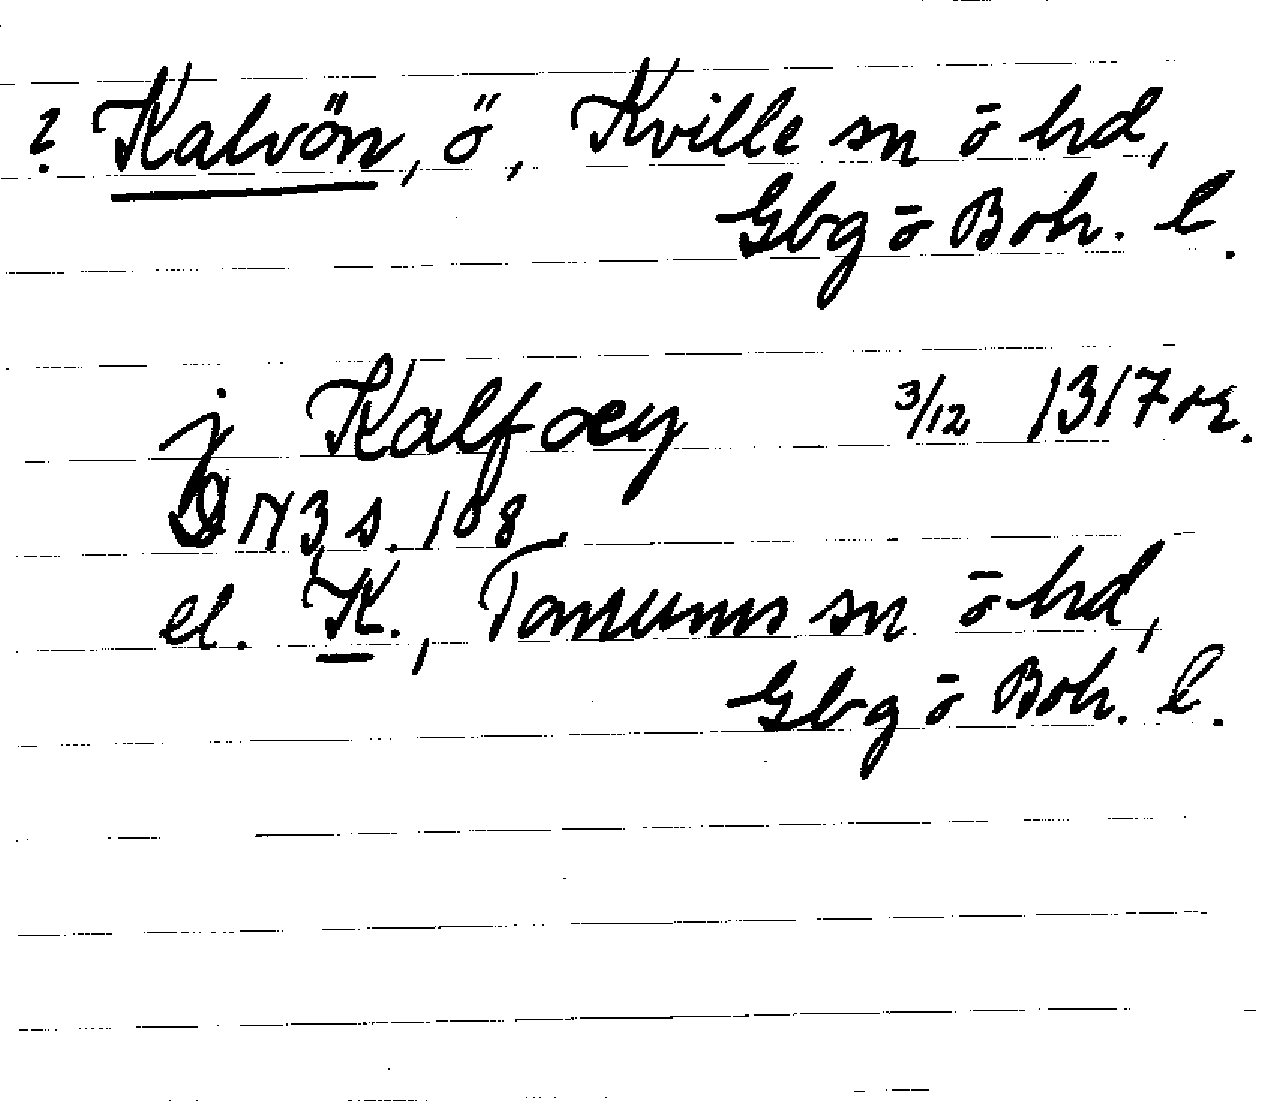 ? Kalvön, ö, Kville sn ō hd,
Gbg ō Boh. l.
j Kalfoey 3/12 1317 or.
DN 3 s. 108
el. K., Tanums sn ō hd,
Gbg ō Boh. l.